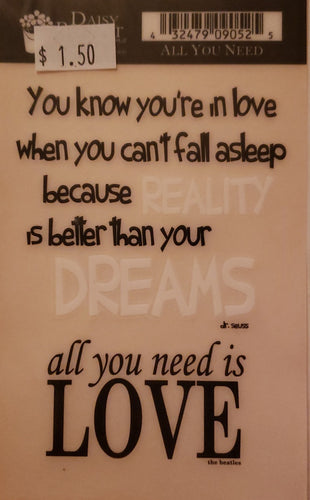 DAISY
$ 1.50
4 32479 09052 5
ALL YOU NEED
You know you're in love
when you can't fall asleep
because REALITY
is better than your
DREAMS
dr. seuss
all you need is
LOVE
the beatles